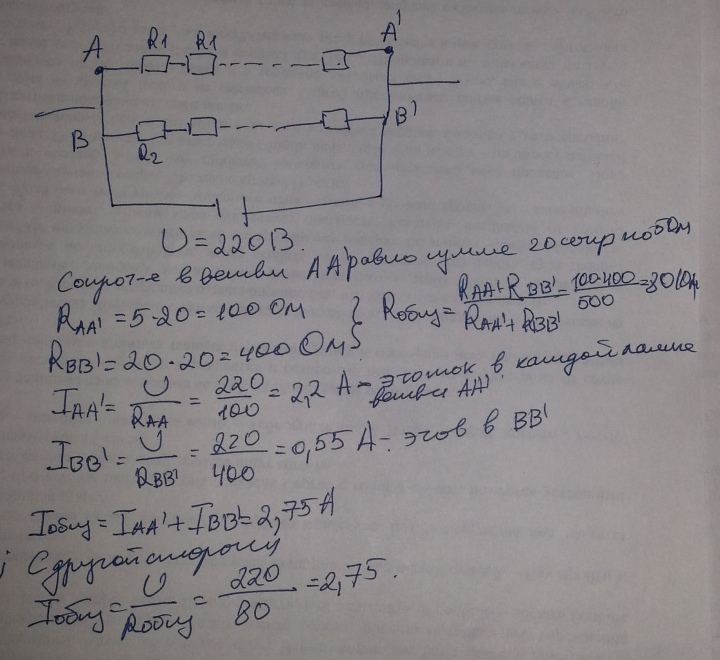 A R1 R1 A'
B R2 B'
U = 220 В.
Сопрот-е в ветви AA' равно сумме 20 сопр по 5 Ом
R_AA' = 5·20 = 100 Ом } R общ = R_AA'·R_BB' / R_AA' + R_BB' = 100·400 / 500 = 80 Ом
R_BB' = 20·20 = 400 Ом
I_AA' = U / R_AA = 220 / 100 = 2,2 А - это ток в каждой лампе
ветви AA'
I_BB' = U / R_BB' = 220 / 400 = 0,55 А - в BB'
I общ = I_AA' + I_BB' = 2,75 А
С другой стороны
I общ = U / R общ = 220 / 80 = 2,75.